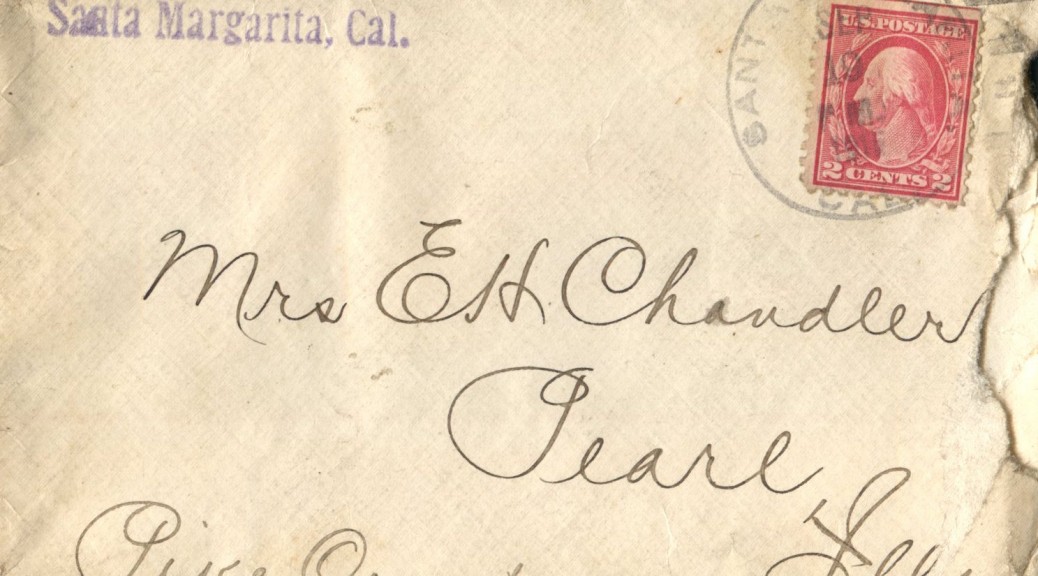 Santa Margarita, Cal.
SANT
SEP
10
CAL
U.S. POSTAGE
2 CENTS 2
Mrs EH. Chandler
Pearl
Pike Co Ills